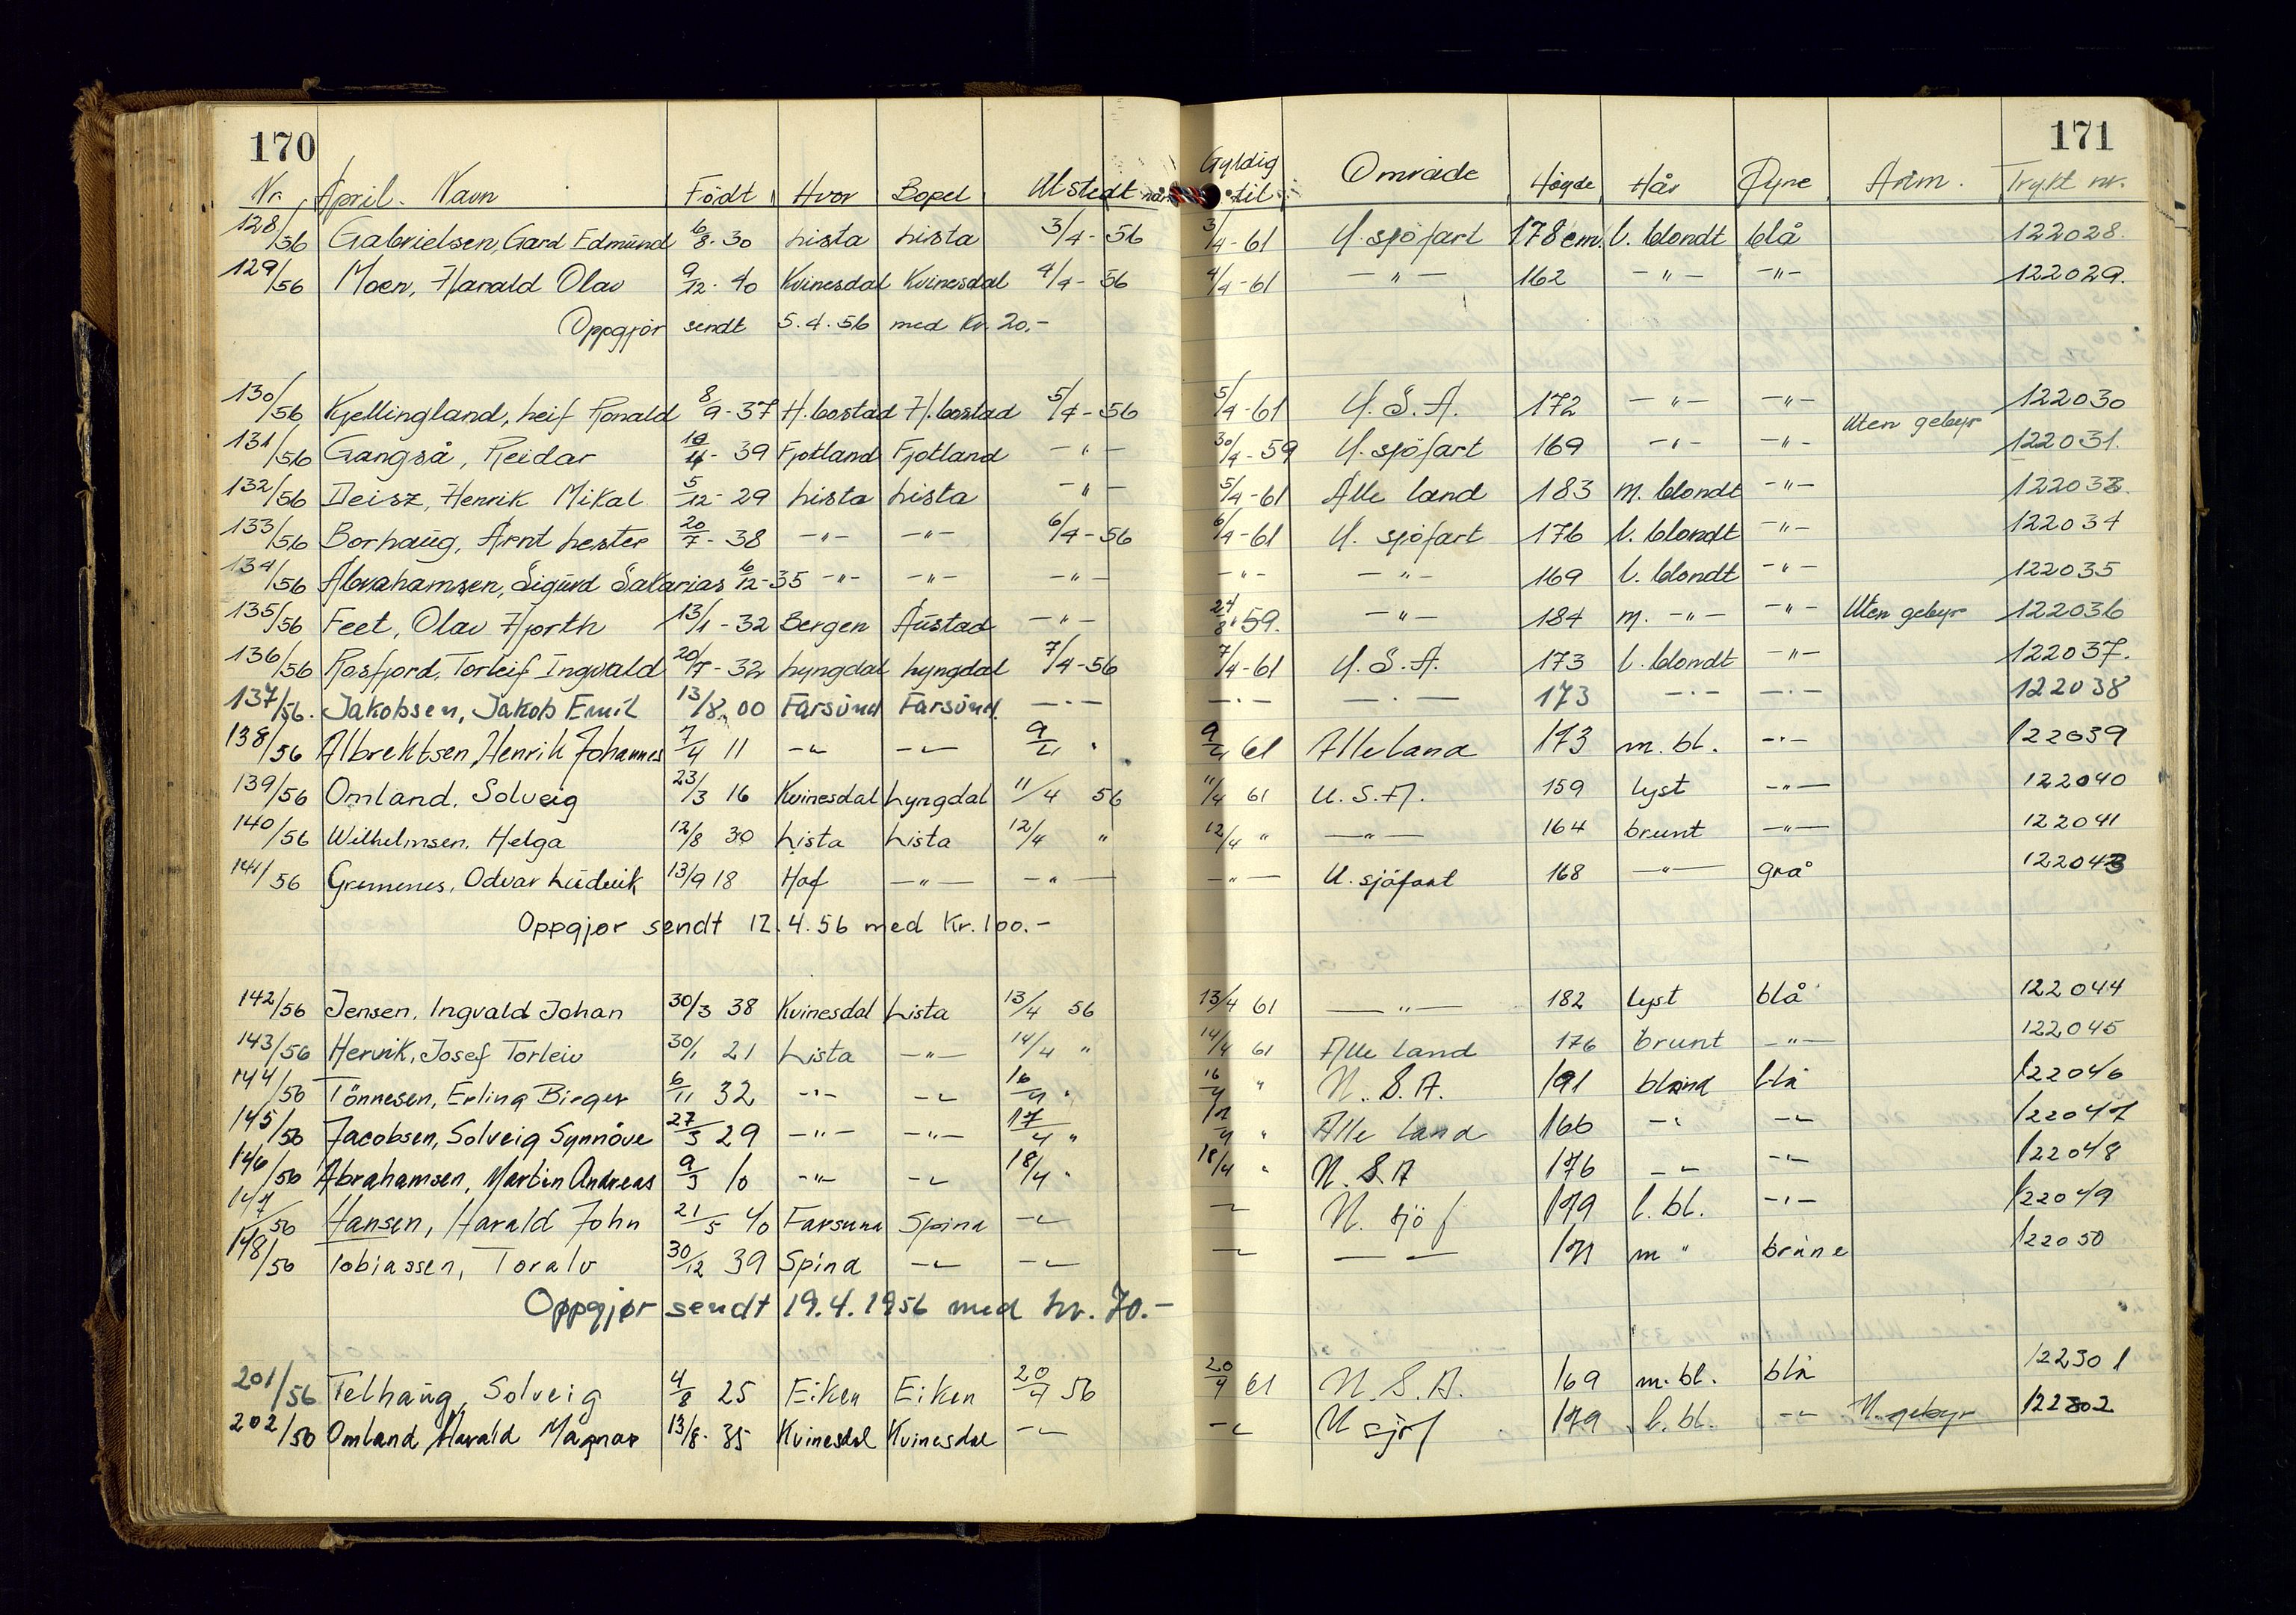 170 171
Nr. April. Navn Födt Hvor Bopel Utstedt når Gyldig til Område Høyde Hår Øyne Anm. Trykt nr.
128/56 Gabrielsen, Gard Edmund 6/8-30 Lista Lista 3/4-56 3/4-61 U. sjöfart 178 cm. l. blondt blå 122028.
129/56 Moen, Harald Olav 9/12-40 Kvinesdal Kvinesdal 4/4-56 4/4-61 -"- 162 -"- -"- 122029.
Oppgjör sendt 5.4.56 med Kr. 20.-
130/56 Kjellingland, Leif Ronald 8/9-37 H.bostad H.bostad 5/4-56 5/4-61 U.S.A. 172 -"- -"- 122030
131/56 Gangså, Reidar 39 Fjotland Fjotland -"- 30/4-59 U. sjöfart 169 -"- -"- Uten gebyr 122031.
132/56 Deisz, Henrik Mikal 5/12-29 Lista Lista -"- 5/4-61 Alle land 183 m. blondt -"- 122033.
133/56 Borhaug, Arnt Lester 20/7-38 -"- -"- 6/4-56 6/4-61 U. sjöfart 176 l. blondt -"- 122034
134/56 Abrahamsen, Sigurd Sakarias 6/12-35 -"- -"- -"- -"- -"- 169 l. blondt -"- 122035
135/56 Feet, Olav Hjorth 13/1-32 Bergen Austad -"- 24/8-59. -"- 184 m. -"- -"- Uten gebyr 122036
136/56 Rosfjord, Torleif Ingvald 20/7-32 Lyngdal Lyngdal 7/4-56 7/4-61 U.S.A. 173 l. blondt -"- 122037.
137/56. Jakobsen, Jakob Emil 13/8.00 Farsund Farsund. -"- -"- -"- 173 -"- -"- 122038
138/56 Albrektsen, Henrik Johannes 7/4 11 -"- -"- 9/4 " 9/4 61 Alle land 173 m. bl. -"- 122039
139/56 Omland, Solveig 23/3 16 Kvinesdal Lyngdal 11/4 56 11/4 61 U.S.A. 159 lyst -"- 122040
140/56 Wilhelmsen, Helga 12/8 30 Lista Lista 12/4 " 12/4 " -"- 164 brunt -"- 122041
141/56 Gremenes, Odvar Ludvik 13/9 18 Hof -"- -"- -"- U. sjöfart 168 -"- grå 122043
Oppgjør sendt 12.4.56 med Kr. 100.-
142/56 Jensen, Ingvald Johan 30/3 38 Kvinesdal Lista 13/4 56 13/4 61 -"- 182 lyst blå 122044
143/56 Hervik, Josef Torleiv 30/1 21 Lista -"- 14/4 " 14/4 61 Alle land 176 brunt -"- 122045
144/56 Tönnesen, Erling Birger 6/11 32 -"- -"- 16/4 " 16/4 " U.S.A. 191 blond blå 122046
145/56 Jacobsen, Solveig Synnöve 27/3 29 -"- -"- 17/4 " 17/4 " Alle land 166 -"- -"- 122047
146/56 Abrahamsen, Martin Andreas 9/3 10 -"- -"- 18/4 " 18/4 " U.S.A 176 -"- -"- 122048
147/56 Hansen, Harald John 21/5 40 Farsund Spind -"- -"- U. sjöf 179 l. bl. -"- 122049
148/56 Tobiassen, Toralv 30/12 39 Spind -"- -"- -"- -"- 171 m " brune 122050
Oppgjør sendt 19.4.1956 med kr. 70.-
201/56 Telhaug, Solveig 4/8 25 Eiken Eiken 20/4 56 20/4 61 U.S.A. 169 m. bl. blå 122301
202/56 Omland Harald Magnar 13/8. 35 Kvinesdal Kvinesdal -"- -"- U sjøf 179 l. bl. -"- U. gebyr 122302